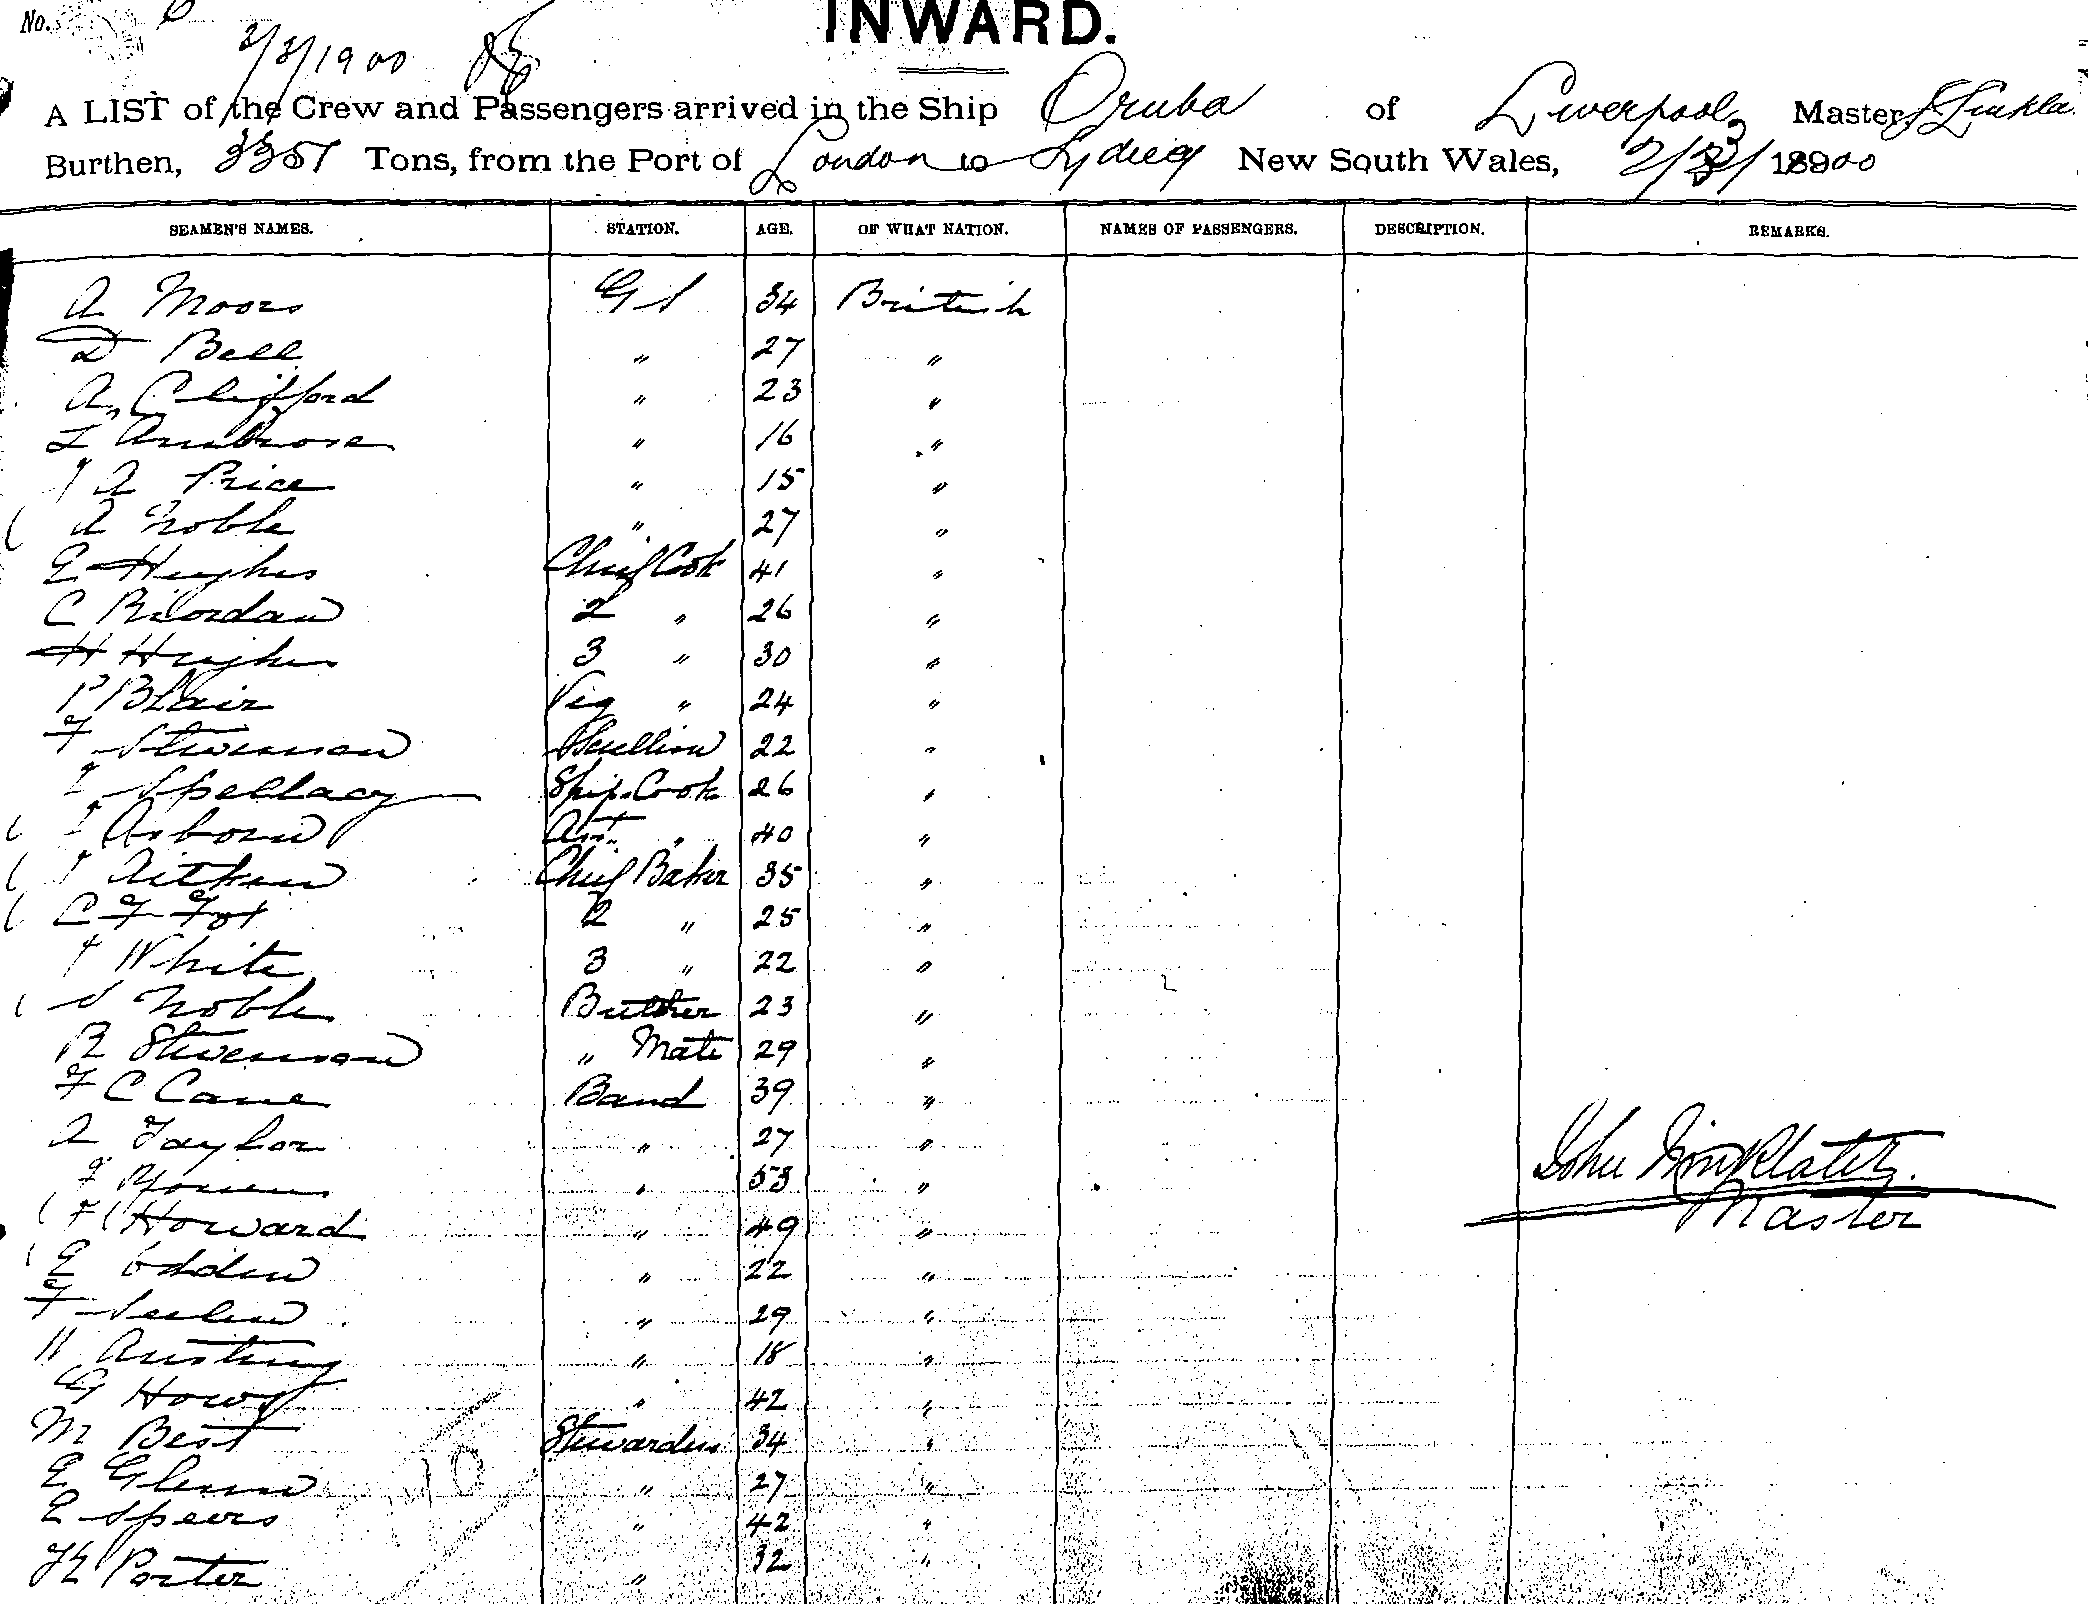 No.
INWARD.
2/3/1900
A LIST of the Crew and Passengers arrived in the Ship Oruba of Liverpool, Master, J Linkla
Burthen, 3351 Tons, from the Port of London to Sydney New South Wales, 2/3/1900
SEAMEN'S NAMES. STATION. AGE. OF WHAT NATION. NAMES OF PASSENGERS. DESCRIPTION. REMARKS.
A Moors G S 34 British
D Bell " 27 "
A Clifford " 23 "
L Ambrose " 16 "
A Price " 15 "
A Noble " 27 "
E Hughes Chief Cook 41 "
C Riordan 2 " 26 "
H Hughes 3 " 30 "
P Blair Veg " 24 "
F Stevenson Scullion 22 "
J Spellacy Ship's Cook 26 "
J Osborn Asst. " 40 "
J Aitken Chief Baker 35 "
C F Fox 2 " 25 "
J White 3 " 22 "
J Noble Butcher 23 "
R Stevenson " Mate 29 "
F C Cane Band 39 "
A Taylor " 27 "
J " 53 "
F Howard " 49 "
E " 22 "
F " 29 "
W " 18 "
G " 42 "
M Best Stewardess 34 "
E Glenn " 27 "
E Speers " 42 "
Porter " 32 "
John Master